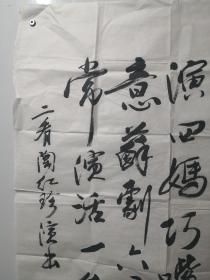 演四媽巧嘴
意蘇劇六
常演活一
二看陶红珍演出